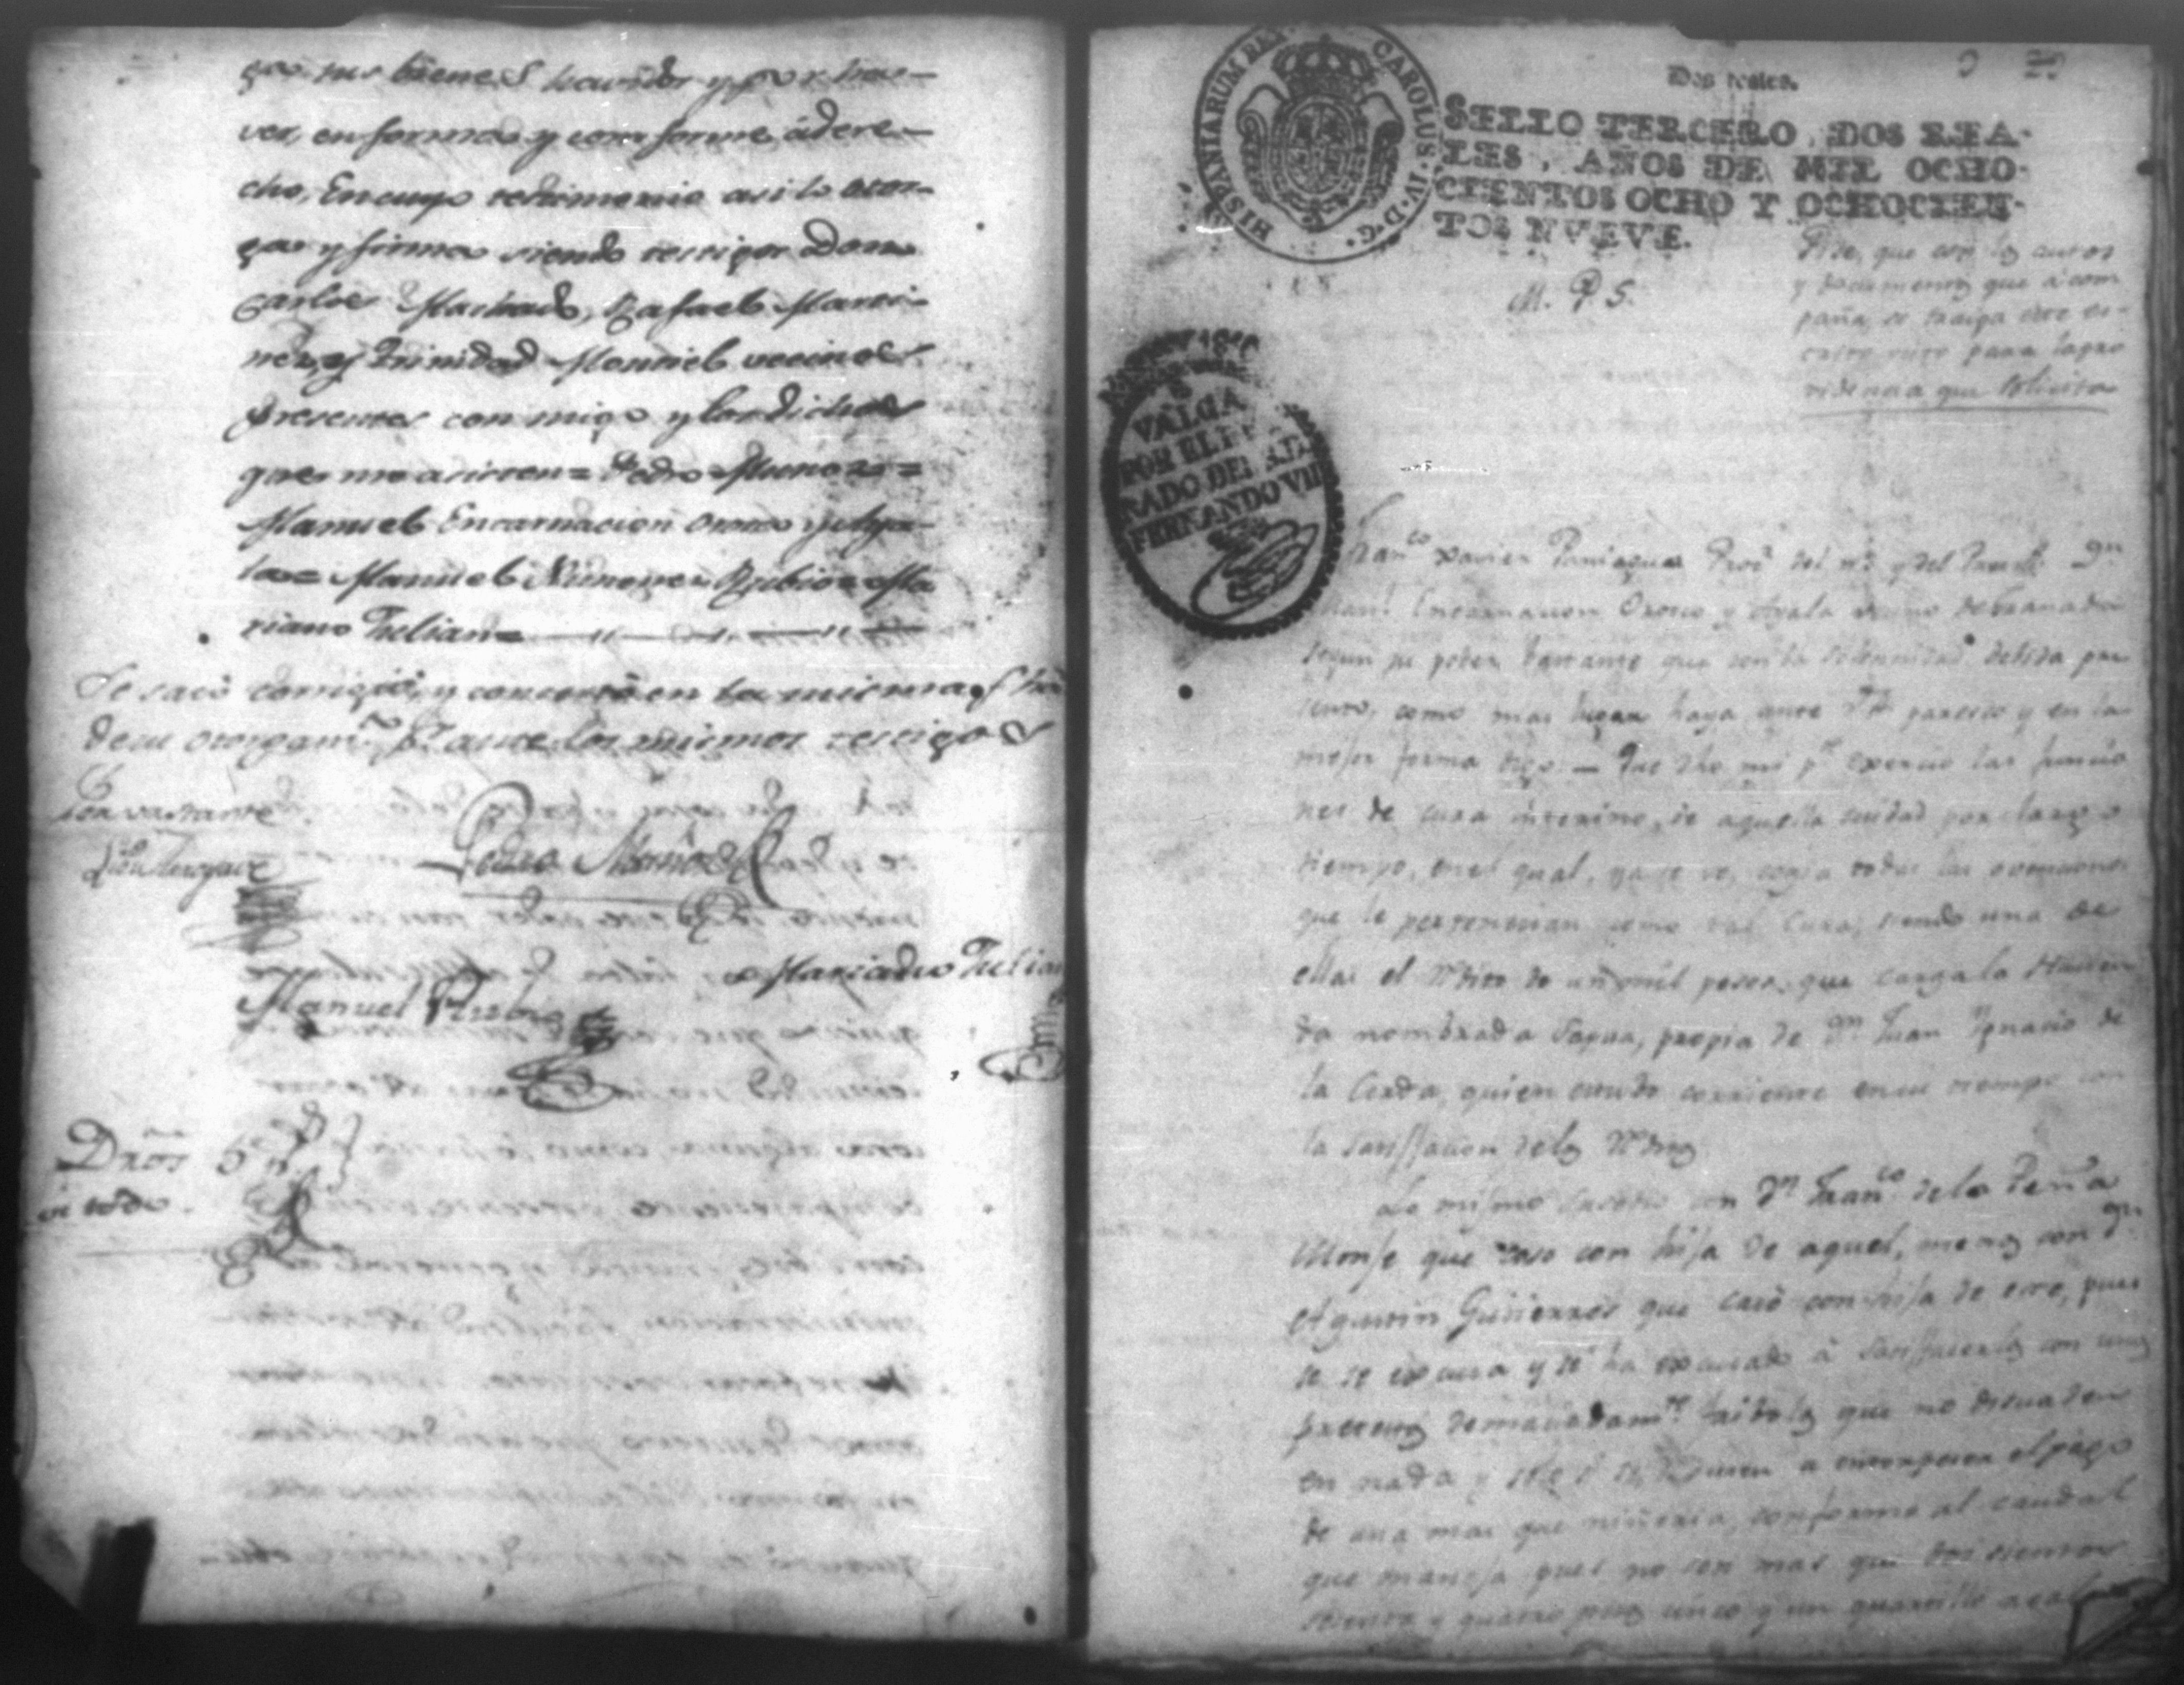 gas sus bienes havidos y por ha-
ver, en forma y conforme á dere-
cho, En cuyo testimonio asi lo otor-
ga y firma siendo testigos adon
Carlos Machado, Rafael Marti-
nes, y Trinidad Montiel vecinos
presentes con migo y los dichos
que me asisten = Pedro Muños =
Manuel Encarnacion Orosco y Aya-
la = Manuel Rubio = Ma
riano Julian =
Se sacó corrigió, y concertó en la misma fha
de su otorgam.to ante los mismos testigos
Pedro Muños
Mariano Julian
Manuel Rubio
Dros 6 p
en todo.
HISPANIARUM REX CAROLUS IV D G
Dos reales.
SELLO TERCERO, DOS REA-
LES, AÑOS DE MIL OCHO-
CIENTOS OCHO Y OCHOCIEN-
TOS NVEVE.
Pide, que con los autos
y documentos que acom
paña, se traiga este es-
crito visto para la pro
videncia que solicita
M. P. S.
VALGA
POR EL
RADO DEL
FERNANDO VII
Fran.co Xavier Paniagua Pro.r del n.o y del D.n
Man.l Encarnacion Orosco y Ayala vecino de Granada
segun su poder bastante que con la solemnidad debida pre
sento, como mas lugar haya ante paresco y en la
mejor forma digo. — Que dho mi p.te exercio las funcio
nes de cura interino, de aquella ciudad por largo
tiempo, en el qual, ya se ve, cogia todas las obenciones
que le pertenecian como tal Cura, siendo una de
ellas el redito de un mil pesos, que carga la Hacien
da nombrada Sapoa, propia de D.n Juan Ignacio de
la Cerda, quien estubo corriente en su tiempo con
la satisfacion de los reditos
Lo mismo sucedio con D.n Fran.co de la Peña
Monje que caso con hija de aquel, menos con D.n
Agustin Gutierres que casó con hija de este, pues
se escusa y se ha escusado á satisfacerlos con unos
pretextos demaciadam.te fribolos que no disuaden
en nada y
de una mas que niñeria, conforme al caudal
que maneja pues no son mas que doscientos
y quatro pesos cinco y un quartillo reales